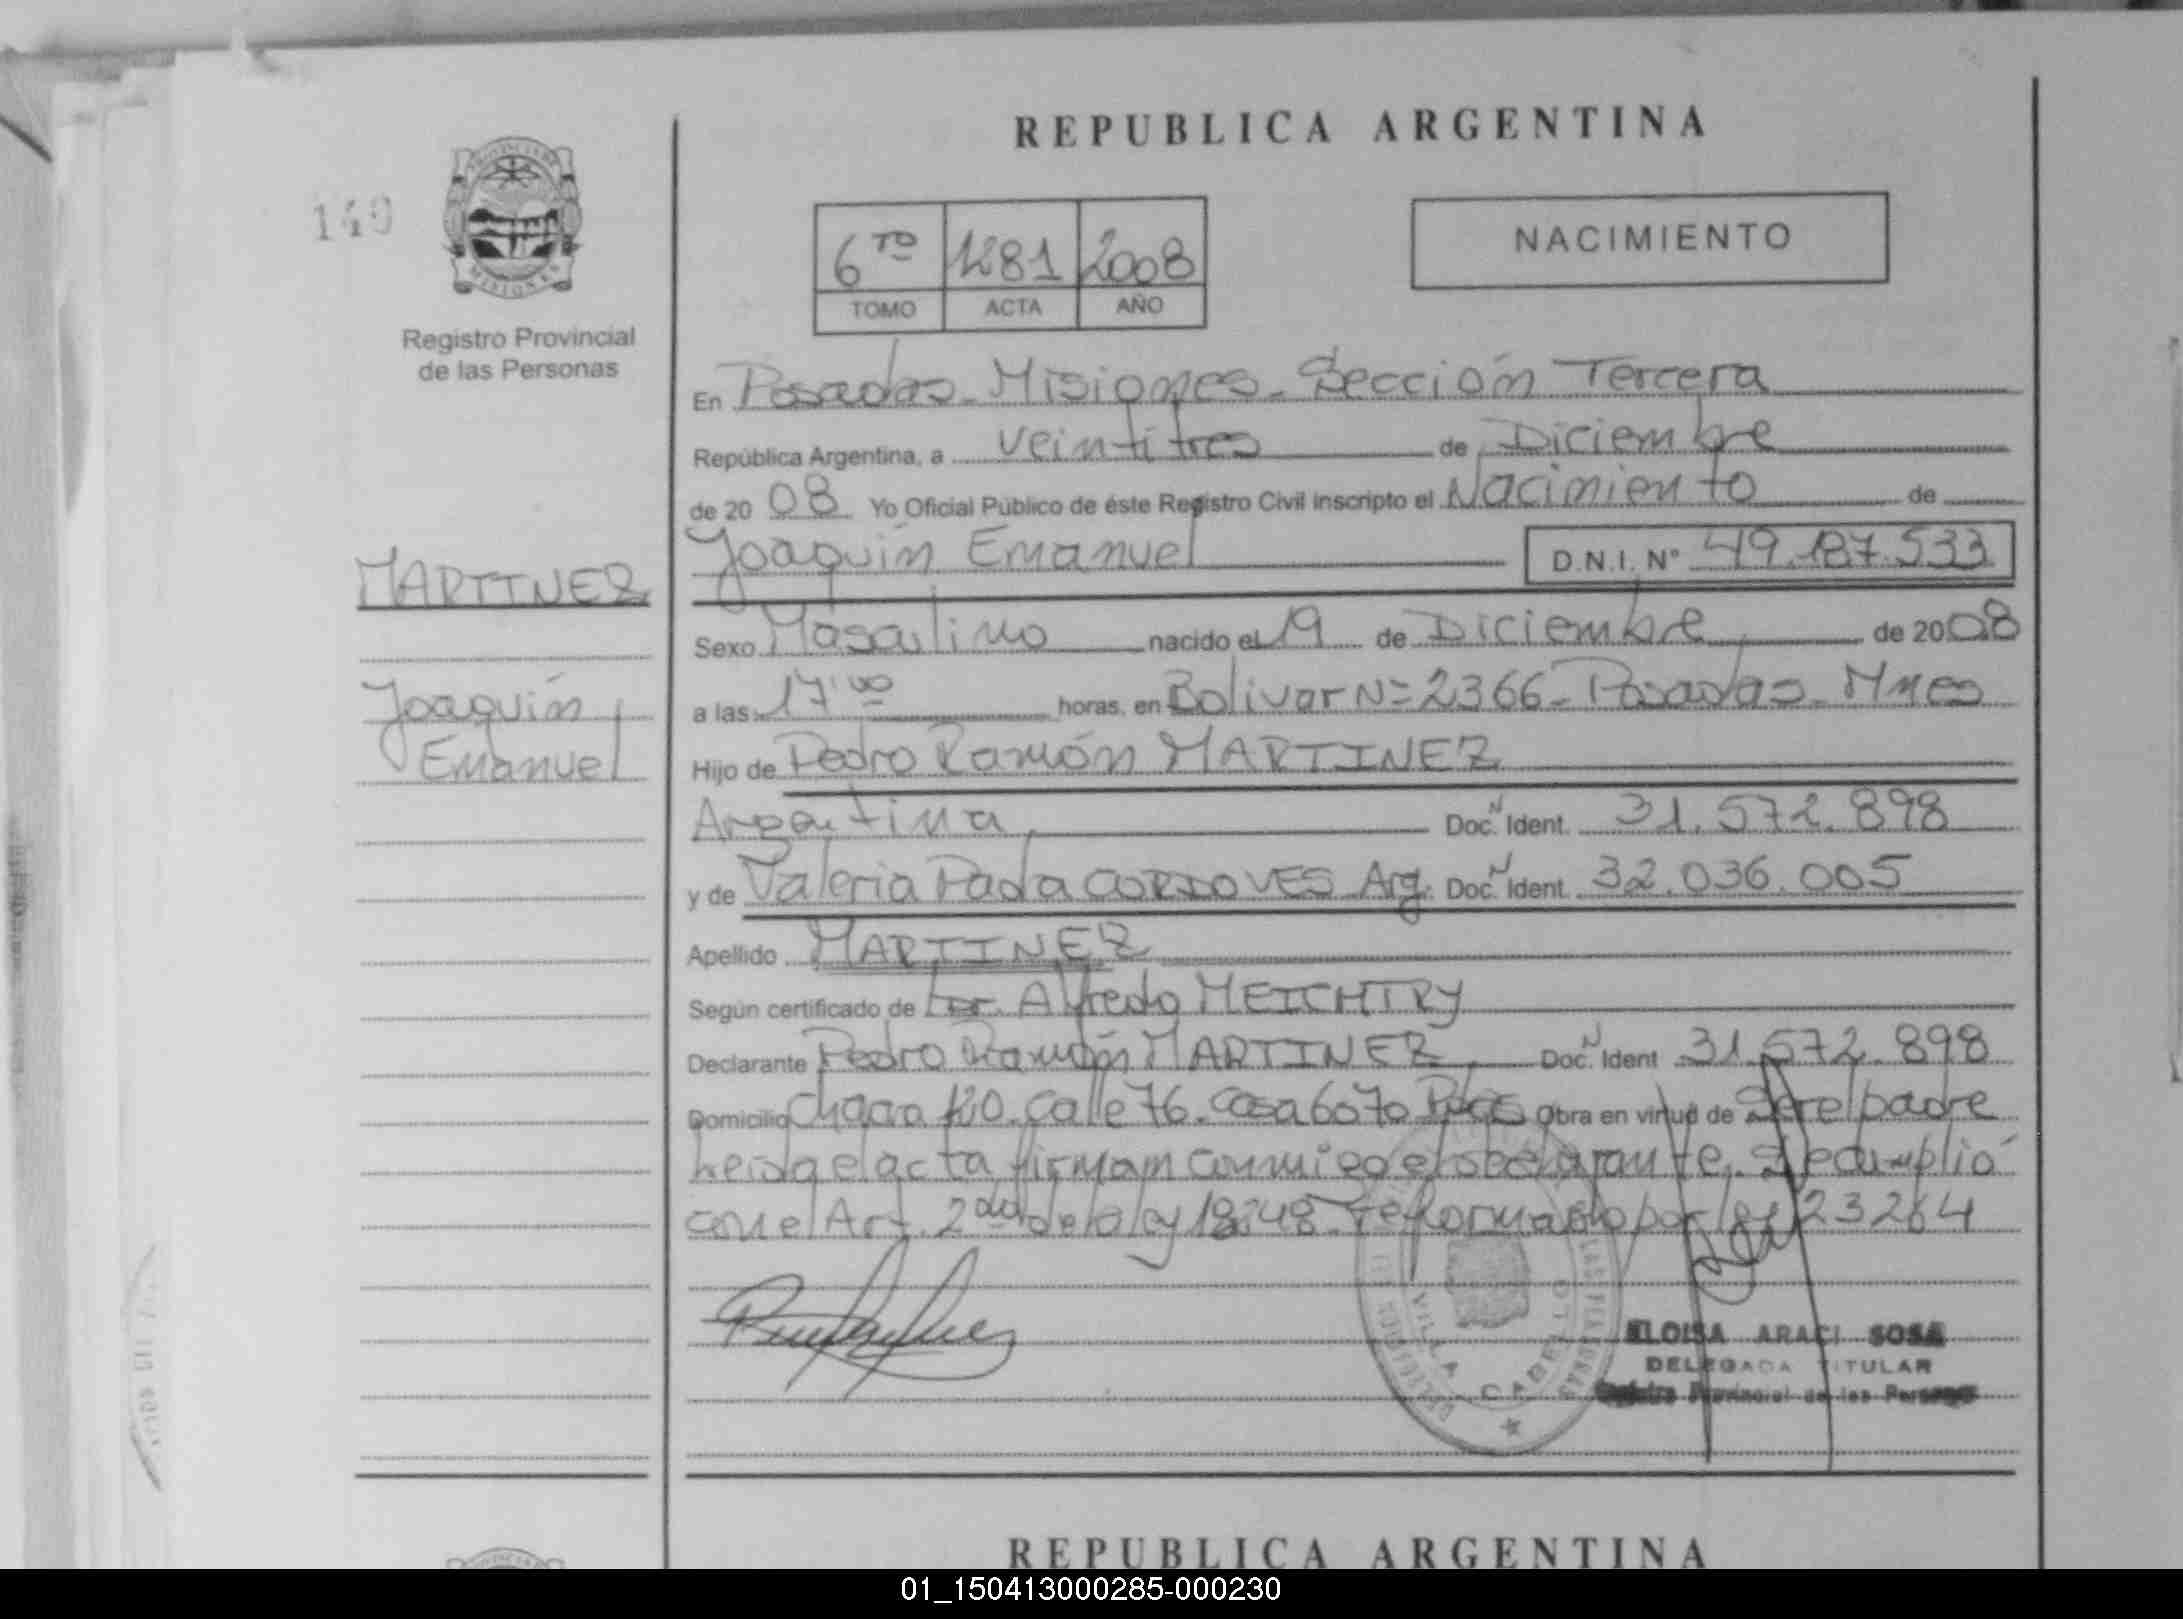 REPUBLICA ARGENTINA
149
PROVINCIA DE
MISIONES
6TO 1281 2008
TOMO ACTA AÑO
NACIMIENTO
Registro Provincial
de las Personas
En Posadas - Misiones - Sección Tercera
República Argentina, a veintitres de Diciembre
de 2008 Yo Oficial Público de éste Registro Civil inscripto el Nacimiento de
MARTINEZ
Joaquín Emanuel D.N.I. N° 49.187.533
Sexo Masculino nacido el 19 de Diciembre de 2008
Joaquín
Emanuel
a las 17:00 horas, en Bolivar Nº 2366 - Posadas - Mnes
Hijo de Pedro Ramón MARTINEZ
Argentina Doc. N Ident. 31.572.898
y de Valeria Paola CORDOVES Arg. Doc. N Ident. 32.036.005
Apellido MARTINEZ
Según certificado de Dr. Alfredo MEICHTRY
Declarante Pedro Ramón MARTINEZ Doc. N Ident 31.572.898
Domicilio Chacra 120. Calle 76. Casa 6070 Pdas Obra en virtud de Ser el padre
leida el acta firman conmigo el declarante. Se cumplió
con el Art. 2do de la ley 18248 - reformado por ley 23264
VILLA CABELLO
ELOISA ARACI SOSA
DELEGADA TITULAR
Registro Provincial de las Personas
REPUBLICA ARGENTINA
01_150413000285-000230